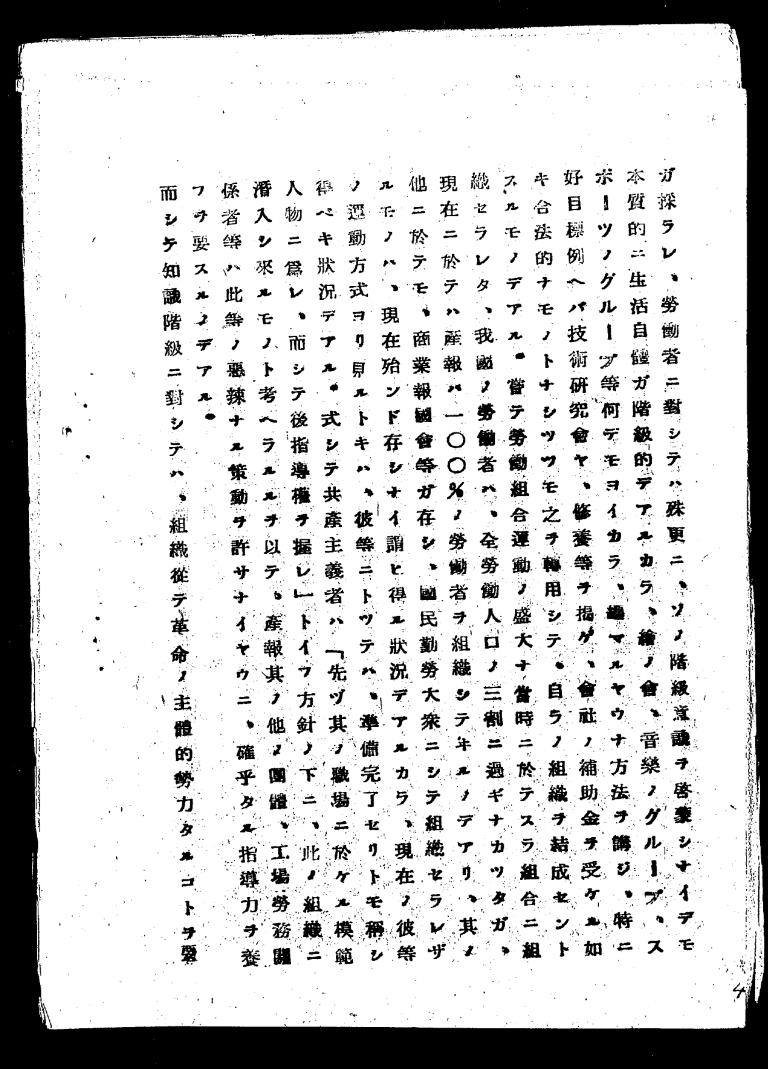 ガ採ラレ、勞働者ニ對シテハ殊更ニ、ソノ階級意識ヲ啓蒙シナイデモ
本質的ニ生活自體ガ階級的デアルカラ、繪ノ會、音樂ノグループ、ス
ポーツノグループ等何デモヨイカラ、纏マルヤウナ方法ヲ講ジ、特ニ
好目標例ヘバ技術研究會ヤ、修養等ヲ揭ゲ、會社ノ補助金ヲ受ケル如
キ合法的ナモノトナシツツモ之ヲ轉用シテ、自ラノ組織ヲ結成セント
スルモノデアル。嘗テ勞働組合運動ノ盛大ナ當時ニ於テスラ組合ニ組
織セラレタ、我國ノ勞働者ハ、全勞働人口ノ三割ニ過ギナカツタガ、
現在ニ於テハ產報ハ一〇〇%ノ勞働者ヲ組織シテヰルノデアリ、其ノ
他ニ於テモ、商業報國會等ガ存シ、國民勤勞大衆ニシテ組織セラレザ
ルモノハ、現在殆ンド存シナイ謂ヒ得ル狀況デアルカラ、現在ノ彼等
ノ運動方式ヨリ見ルトキハ、彼等ニトツテハ、準備完了セリトモ稱シ
得ベキ狀況デアル。式シテ共產主義者ハ「先ヅ其ノ職場ニ於ケル模範
人物ニ爲レ、而シテ後指導權ヲ握レ」トイフ方針ノ下ニ、此ノ組織ニ
潛入シ來ルモノト考ヘラルルヲ以テ、產報其ノ他ノ團體、工場勞務關
係者等ハ此等ノ惡辣ナル策動ヲ許サナイヤウニ、確乎タル指導力ヲ養
フヲ要スルノデアル。
而シテ知識階級ニ對シテハ、組織從テ革命ノ主體的勢力タルコトヲ要
4